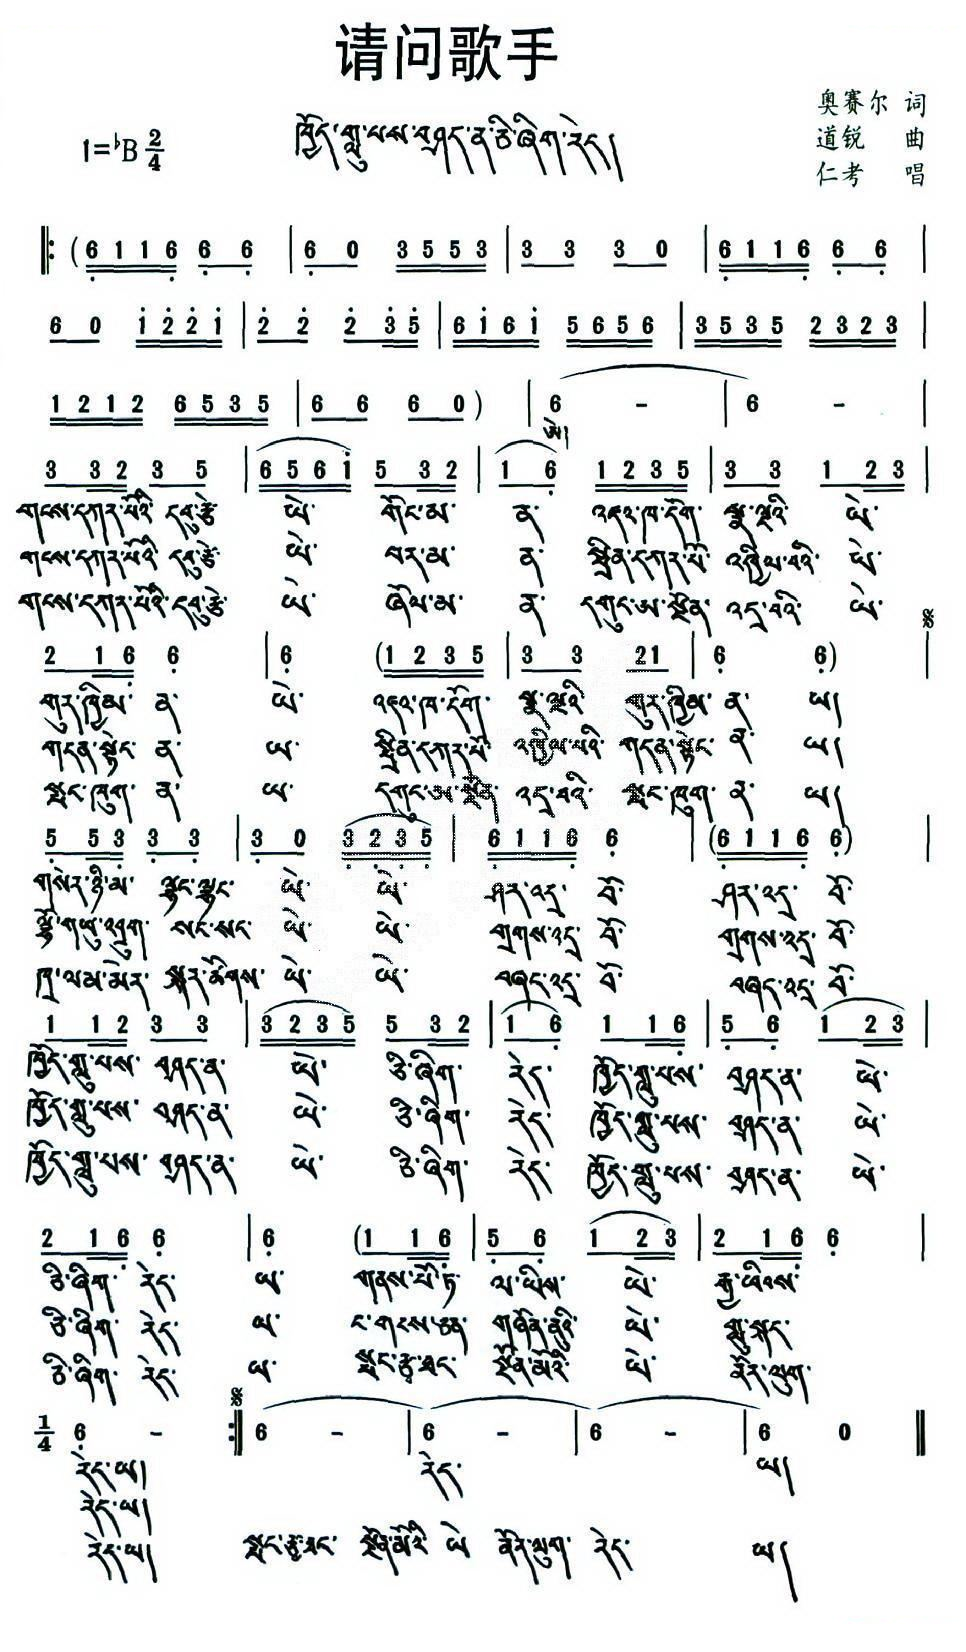 请问歌手
奥赛尔 词
1=♭B 2/4 ཁྱོད་གླུ་པས་བཤད་ན་ཅི་ཞིག་རེད། 道锐 曲
仁考 唱
𝄆 ( 6 1 1 6 6 6 | 6 0 3 5 5 3 | 3 3 3 0 | 6 1 1 6 6 6 |
6 0 1 2 2 1 | 2 2 2 3 5 | 6 1 6 1 5 6 5 6 | 3 5 3 5 2 3 2 3 |
1 2 1 2 6 5 3 5 | 6 6 6 0 ) | 6 - | 6 - |
3 3 2 3 5 | 6 5 6 1 5 3 2 | 1 6 1 2 3 5 | 3 3 1 2 3 |
གངས་དཀར་པོའི་ དབུ་རྩེ་ ཡེ་ གོང་མ་ ན་ འཇའ་ཁ་དོག་ སྣ་ལྔའི་ ཡེ་
གངས་དཀར་པོའི་ དབུ་རྩེ་ ཡེ་ བར་མ་ ན་ སྤྲིན་དཀར་པོ་ འཁྱིལ་བའི་ ཡེ་
གངས་དཀར་པོའི་ དབུ་རྩེ་ ཡེ་ ཞོལ་མ་ ན་ དགུང་ཨ་སྔོན་ འདྲ་བའི་ ཡེ་
2 1 6 6 | 6 ( 1 2 3 5 | 3 3 2 1 | 6 6 ) |
གུར་ཁྱིམ་ ན་ ཡེ་ འཇའ་ཁ་དོག་ སྣ་ལྔའི་ གུར་ཁྱིམ་ ན་ ཡ།
གདན་སྟེང་ ན་ ཡ་ སྤྲིན་དཀར་པོ་ འཁྱིལ་བའི་ གདན་སྟེང་ ན་ ཡ།
སྤང་ཁུག་ ན་ ཡ་ དགུང་ཨ་སྔོན་ འདྲ་བའི་ སྤང་ཁུག་ ན་ ཡ།
5 5 3 3 3 | 3 0 3 2 3 5 | 6 1 1 6 6 | ( 6 1 1 6 6 ) |
གསེར་ཉི་མ་ ལྷང་ལྷང་ ཡེ་ ཡེ་ ཤར་འདྲ་ བོ་ ཤར་འདྲ་ བོ་
ལྷོ་གཡུ་འབྲུག་ སང་སང་ ཡེ་ ཡེ་ གྲགས་འདྲ་ བོ་ གྲགས་འདྲ་ བོ་
ཡེ་ ཡེ་ བཞད་འདྲ་ བོ་ བཞད་འདྲ་ བོ་
1 1 2 3 3 | 3 2 3 5 5 3 2 | 1 6 1 1 6 | 5 6 1 2 3 |
ཁྱོད་གླུ་པས་ བཤད་ན་ ཡེ་ ཅི་ཞིག་ རེད་ ཁྱོད་གླུ་པས་ བཤད་ན་ ཡེ་
ཁྱོད་གླུ་པས་ བཤད་ན་ ཡེ་ ཅི་ཞིག་ རེད་ ཁྱོད་གླུ་པས་ བཤད་ན་ ཡེ་
ཁྱོད་གླུ་པས་ བཤད་ན་ ཡེ་ ཅི་ཞིག་ རེད་ ཁྱོད་གླུ་པས་ བཤད་ན་ ཡེ་
2 1 6 6 | 6 ( 1 1 6 | 5 6 1 2 3 | 2 1 6 6 |
ཅི་ཞིག་ རེད་ ཡ་ ཡེ་
ཅི་ཞིག་ རེད་ ཡ་ ང་གངས་ཅན་ གཞོན་ནུའི་ ཡེ་ གླུ་སྐད་
ཅི་ཞིག་ རེད་ ཡ་ སྤང་རྩྭ་ཐང་ སྔོན་མོའི་ ཡེ་ ནོར་ལུག་
1/4 6 - 𝄇 6 - | 6 - | 6 - | 6 0 ‖
རེད་ཡ། རེད་ ཡ།
རེད་ཡ།
རེད་ཡ། སྤང་རྩྭ་ཐང་ སྔོན་མོའི་ ཡེ་ ནོར་ལུག་ རེད་ ཡ།